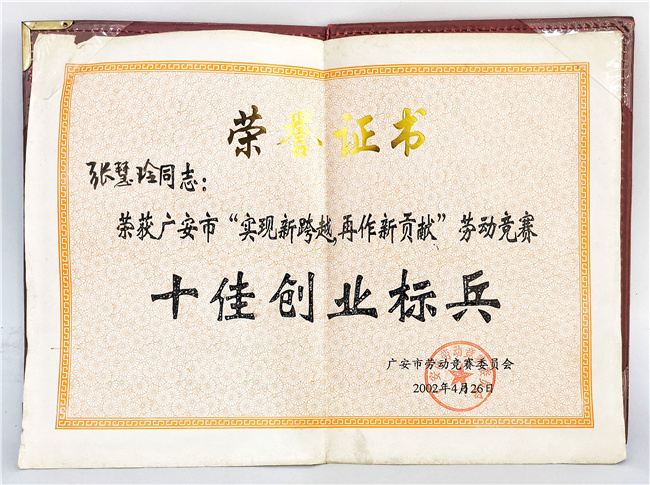 荣誉证书
张慧玲同志：
荣获广安市“实现新跨越，再作新贡献”劳动竞赛
十佳创业标兵
广安市劳动竞赛委员会
2002年4月26日